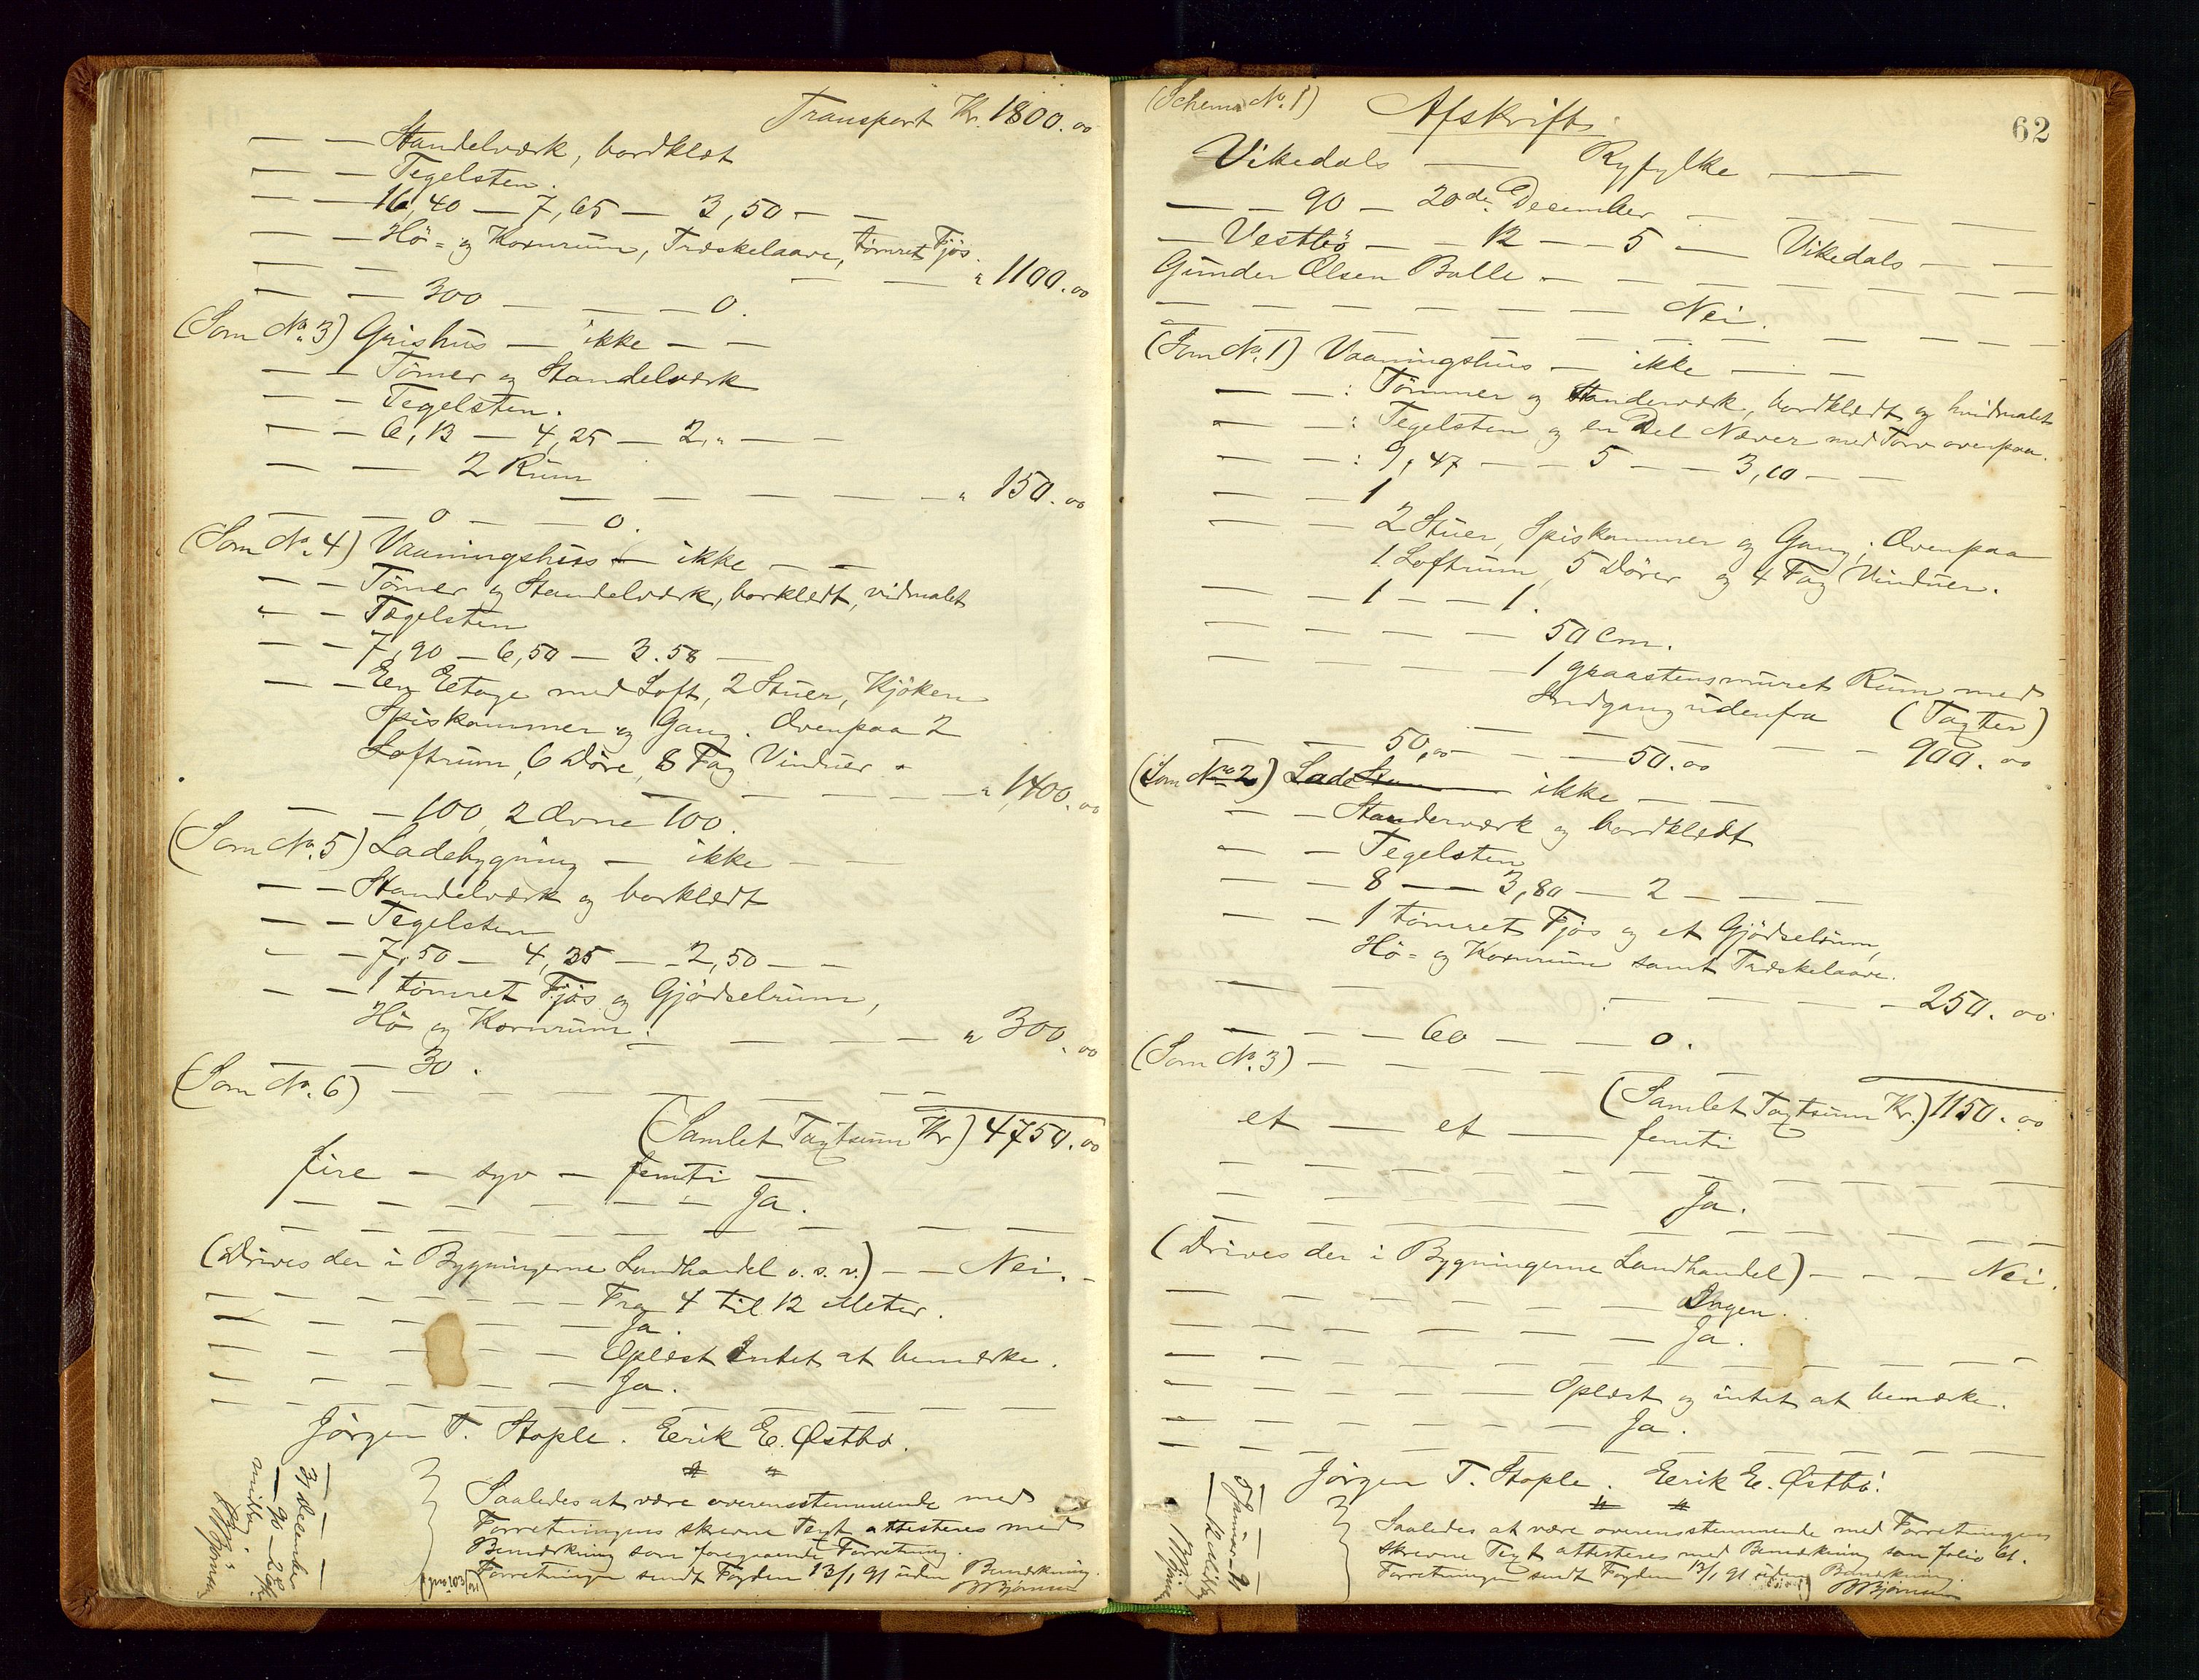 Transport Kr. 1800.00
— — Standelværk, bordklæt
— — Tegelsten.
— — 16,40 — 7,65 — 3,50 — —
— — Hö= og Kornrum, Træskelaave, tömret Fjös.
— — — — — " 1100.00
— — 300 — — — 0.
(Som No. 3) Grishus — ikke — —
— — Tömer og Standelværk
— — Tegelsten.
— — 6,12 — 4,25 — 2," — —
— — 2 Rum
— — — — — — " 150.00
— — 0 — — 0.
(Som No. 4) Vaaningshus — ikke — —
— — Tömer og Standelværk, borklædt, vidmalet
— — Tegelsten
— — 7,90 — 6,50 — 3.58 —
— — Een Eetage med Loft, 2 Stuer, Kjöken
Spiskammer og Gang. Ovenpaa 2
Loftrum, 6 Döre, 8 Fag Vinduer.
— — — — — " 1,400.00
— — 100, 2 Ovne 100.
(Som No. 5) Ladebygning — ikke — —
— — Standelværk og borklædt
— — Tegelsten
— — 7,50 — 4,25 — 2,50 — —
— — 1 tömret Fjös og Gjödselrum,
Hö og Kornrum.
— — — — — " 300.00
— — 30.
(Som No. 6) — — — — — — —
(Samlet Taxtsum Kr) 4750.00
fire — syv — femti —
— — — — — — Ja.
— — — — — — — — —
(Drives der i Bygningerne Landhandel o.s.v.) — — Nei. —
— — — — — — Fra 4 til 12 Meter.
— — — — — — Ja.
— — — — — — Oplæst Intet at bemærke.
— — — — — — Ja.
— — — — — — — — —
Jörgen T. Stople. Eerik E. Østbö.
Saaledes at være overensstemmende med
Forretningens skrevne Text attesteres med
Bemærkning som foregaaende Forretning.
Forretningen sendt Fogden 13/1 91 uden Bemærkning.
BBjørnsen
31 December
— 90 —
BBjørnsen
(Schema No. 1) Afskrift.
62
Vikedals — Ryfylke —
— — 90 — 20de December — — — —
— Vestbö — — 12 — — 5 — Vikedals — —
Gunder Olsen Balle — — — — — —
— — — — — — Nei.
— — — — — — — — —
(Som No. 1) Vaaningshus — ikke — —
— — : Tömmer og Standerværk, bordklædt og hvidmalet
— — : Tegelsten og en Del Næver med Torv ovenpaa.
— — : 9,47 — — 5 — — 3,10 — —
— — 1
— — 2 Stuer, Spiskammer og Gang; Ovenpaa
1 Loftrum, 5 Dörer og 4 Fag Vinduer.
— — 1 — — 1.
— — — — 50 Cm.
— — — — 1 graastensmuret Rum med
Indgang udenfra (Taxter)
— — — — — — 900.00
— — 50,00 — — — 50.00
(Som No 2) Lade — ikke — —
— — Standerværk og bordklædt
— — Tegelsten
— — 8 — — 3,80 — 2 — — —
— — 1 tömret Fjös og et Gjödselrum,
Hö= og Kornrum samt Træskelaave.
— — — — — — 250.00
— — — 60 — — 0.
(Som No. 3) — — — — — — —
(Samlet Taxtsum Kr.) 1150.00
et — et — — femti
— — — — — — — — —
— — — — — — Ja.
— — — — — — — — —
(Drives der i Bygningerne Landhandel) — — — Nei.
— — — — — — Ingen.
— — — — — — Ja.
— — — — — — — — —
— — — — — Oplæst og intet at bemærke.
— — — — — — Ja.
— — — — — — — — —
Jörgen T. Stople. Eerik E. Østbö.
Saaledes at være overensstemmende med Forretningens
skrevne Text attesteres med Bemærkning som folio 61.
Forretningen sendt Fogden 13/1 91 uden Bemærkning.
BBjørnsen
5 Januar 91
BBjørnsen